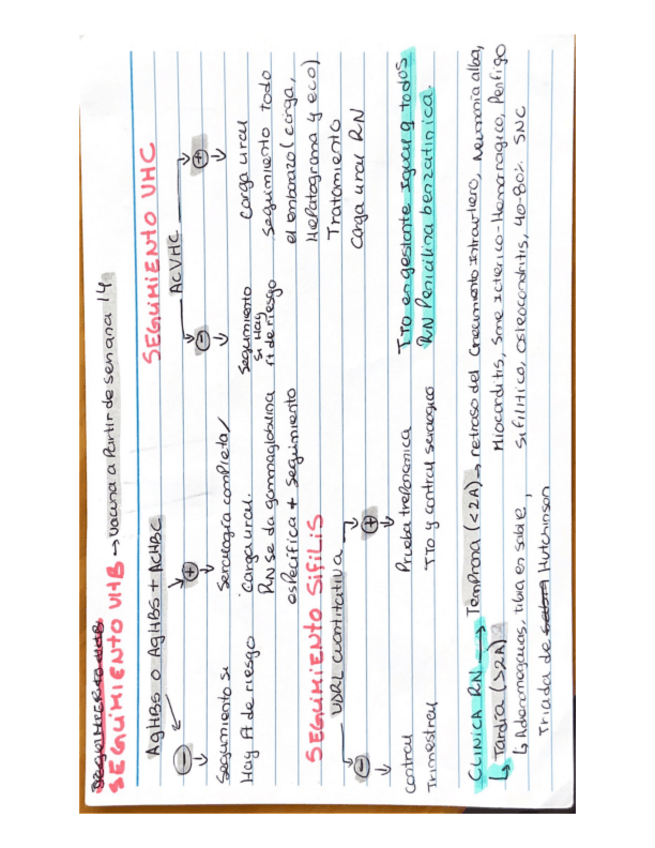 SEGUIMIENTO VHB
SEGUIMIENTO VHB → Vacuna a Partir de semana 14
AgHBS o AgHBS + ACHBC
- +
Seguimiento si
Hay ft de riesgo
Serología completa/
Carga viral.
RN se da gammaglobulina
específica + seguimiento
SEGUIMIENTO VHC
ACVHC
- +
Seguimiento
Si Hay
ft de riesgo
Carga viral
seguimiento todo
el embarazo (carga,
Hepatograma y eco)
Tratamiento
Carga viral RN
SEGUIMIENTO SíFiLiS
VDRL cuantitativa
- +
Control
Trimestral
Prueba treponemica
TTO y control serologico
TTO en gestante Igual q todos
RN Penicilina benzatinica.
CLINICA RN → Temprana (<2A) → retraso del Crecimiento Intrauterino, Neumonia alba,
Miocarditis, Sme Icterico-Hemorragico, Penfigo
Sifilitico, osteocondritis, 40-80% SNC
↳ Tardía (>2A)
↳ Adenomegalias, Tibia en sable,
Triada de Hutchinson